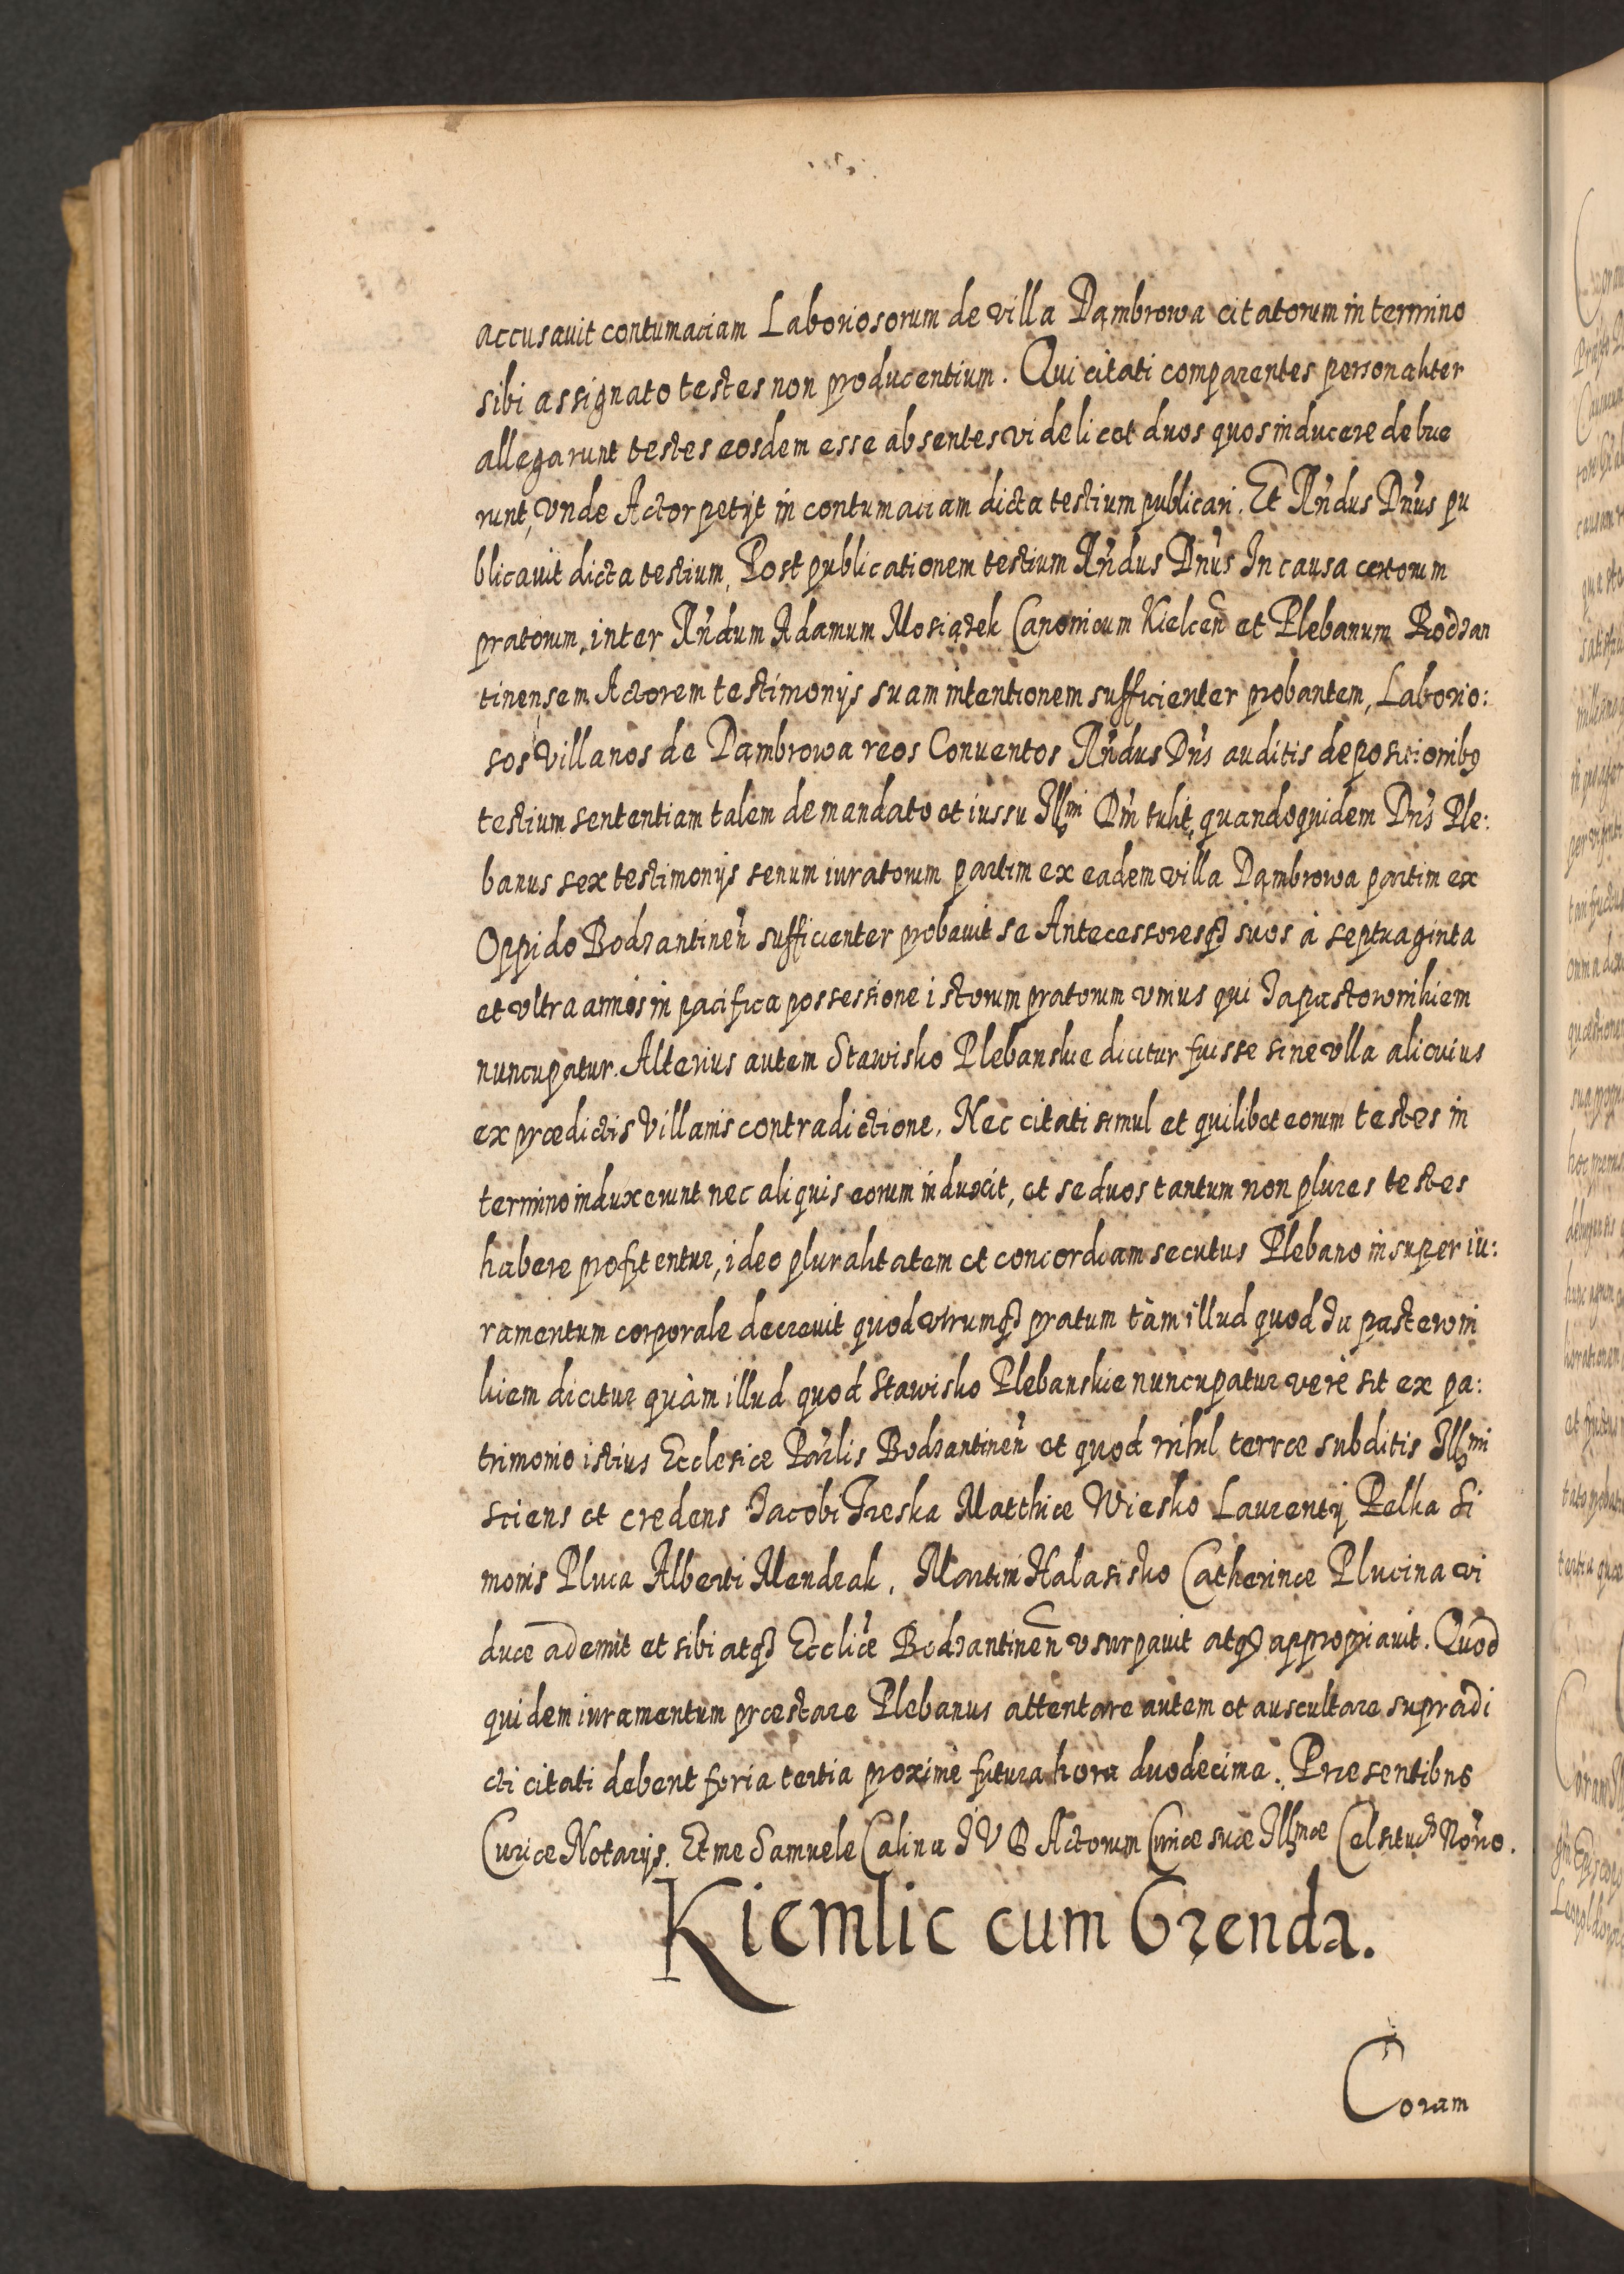 accusauit contumaciam Laboriosorum de villa Dąmbrowa citatorum in termino
sibi assignato testes non producentium. Qui citati comparentes personaliter
allegarunt testes eosdem esse absentes videlicet duos quos inducere debue
runt, vnde Actor petijt in contumaciam dicta testium publicari. Et Rn̄dus Dn̄us pu
blicauit dicta testium, Post publicationem testium Rn̄dus Dn̄us In causa certorum
pratorum, inter Rn̄dum Adamum Mosiązek Canonicum Kielcen̄ et Plebanum Bodzan
tinensem Actorem testimonijs suam intentionem sufficienter probantem, Laborio:
sos Villanos de Dąmbrowa reos Conuentos Rn̄dus Dn̄s auditis depositionibꝰ
testium sententiam talem de mandato et iussu Illmi Dn̄i tulit, quandoquidem Dn̄s Ple:
banus sex testimonijs senum iuratorum partim ex eadem villa Dąmbrowa partim ex
Oppido Bodzantinen̄ sufficienter probauit se Antecessoresqꝫ suos à septuaginta
et vltra annos in pacifica possessione istorum pratorum vnius qui Iapastorownikiem
nuncupatur. Alterius autem Stawisko Plebanskie dicitur fuisse sine vlla alicuius
ex prædictis Villanis contradictione. Nec citati simul et quilibet eorum testes in
termino induxerunt nec aliquis eorum induxit, et se duos tantum non plures testes
habere profitentur, ideo pluralitatem et concordiam secutus Plebano insuper iu:
ramentum corporale decreuit quod vtrumqꝫ pratum tàm illud quod Iu pasterowni
kiem dicitur quàm illud quod Stawisko Plebanskie nuncupatur verè sit ex pa:
trimonio istius Ecclesiæ Par̄lis Bodzantinen̄ et quod nihil terræ subditis Illmi
sciens et credens Iacobi Treska Matthiæ Wiesko Laurentij Pelka Si
monis Pluca Alberti Mendrak, Martini Halasisko Catherinæ Plucina vi
duæ ademit et sibi atqꝫ Eccl̄iæ Bodzantinen̄ vsurpauit atqꝫ appropriauit. Quod
quidem iuramentum præstare Plebanus attentare autem et auscultare supradi
cti citati debent feria tertia proximè futura hora duodecima. Præsentibus
Curiæ Notarijs. Et me Samuele Calinu I V D Actorum Curiæ suæ Illmæ Celsitud̄ Nor̄io.
Kiemlic cum Grenda.
Coram